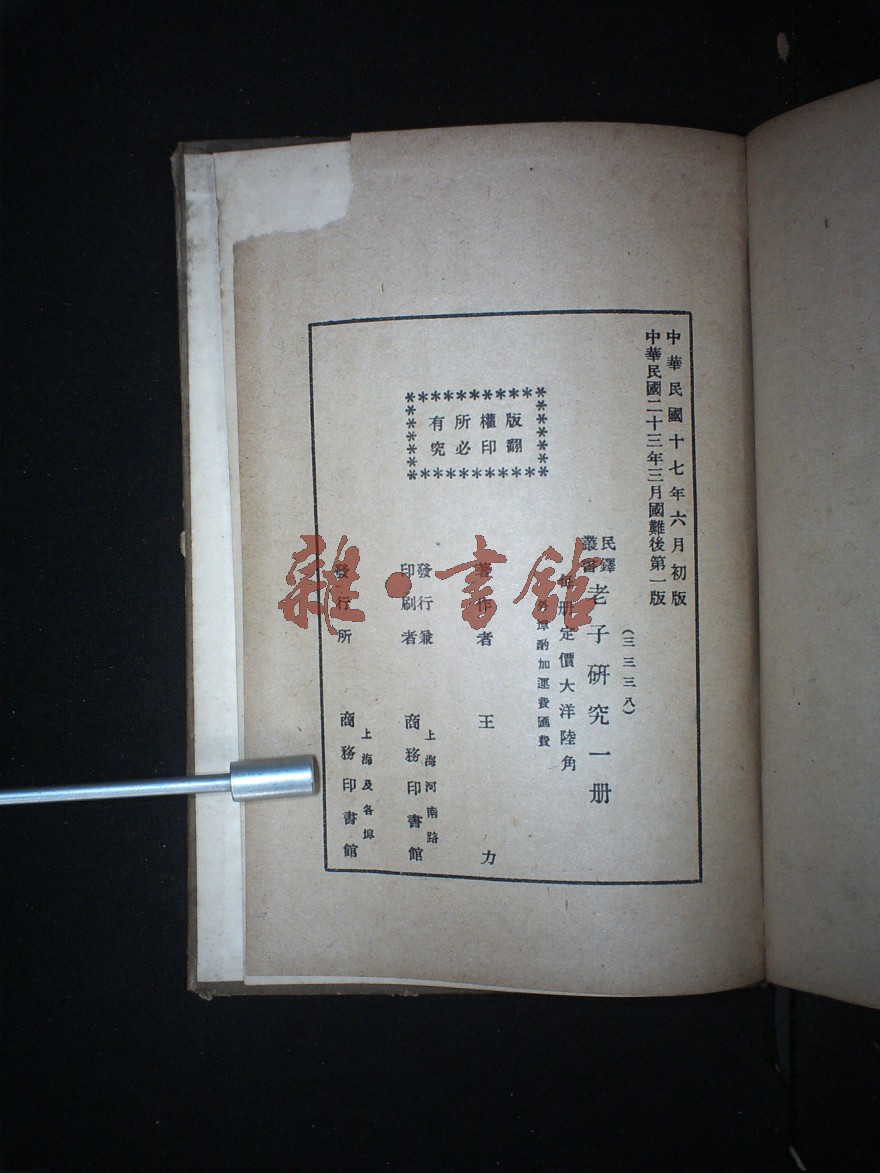 中華民國十七年六月初版
中華民國二十三年三月國難後第一版
(三三三八)
民鐸叢書 老子研究一册
每册定價大洋陸角
外埠酌加運費匯費
版權所有
翻印必究
著作者 王力
發行兼印刷者 上海河南路 商務印書館
發行所 上海及各埠 商務印書館
雜·書館